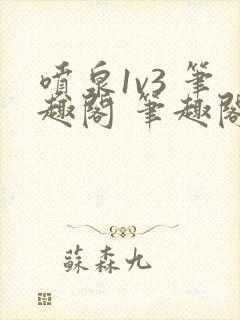 噴泉1v3 筆
趣閣 筆趣閣
蘇森九